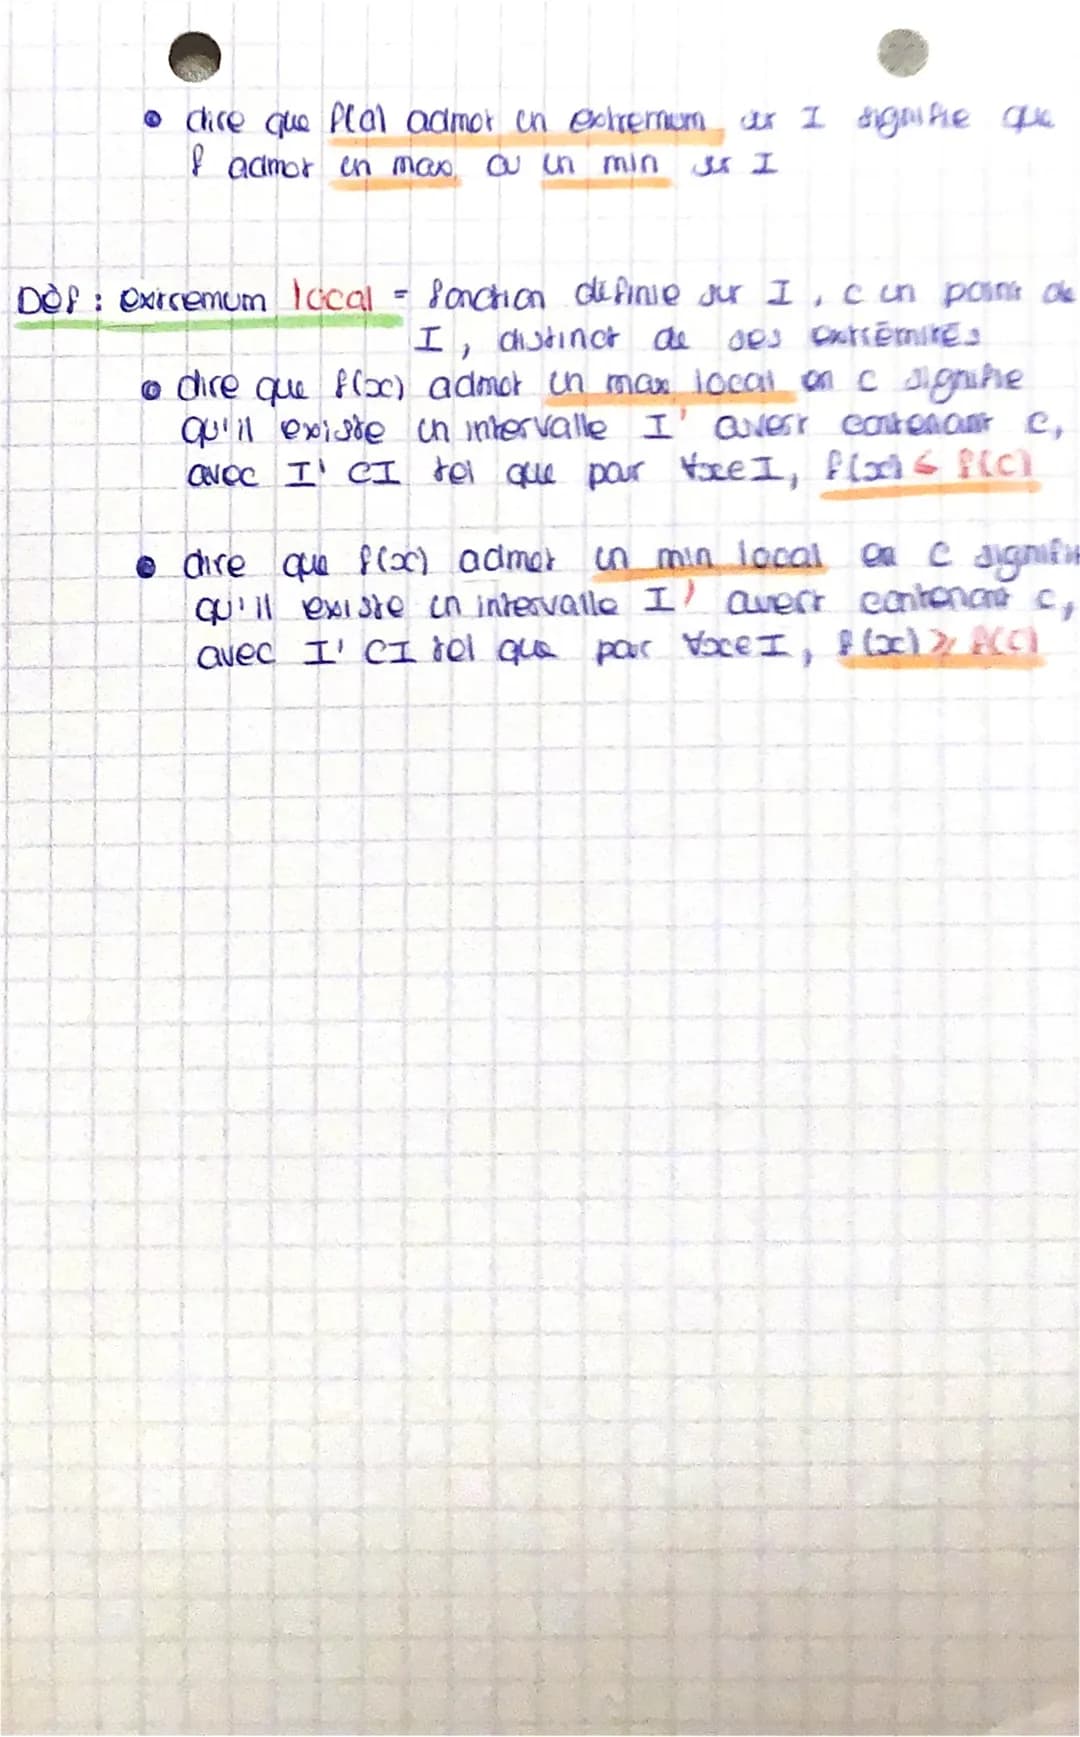 • dire que f(a) admet un extremum sur I signifie que
f admet un max ou un min sur I
DÉF : extremum local = fonction définie sur I, c un point de
I, distinct de ses extrémités
• dire que f(x) admet un max local en c signifie
qu'il existe un intervalle I' ouvert contenant c,
avec I' ⊂ I tel que par ∀x∈I, f(x) ≤ f(c)
• dire que f(x) admet un min local en c signifie
qu'il existe un intervalle I' ouvert contenant c,
avec I' ⊂ I tel que par ∀x∈I, f(x) ≥ f(c)